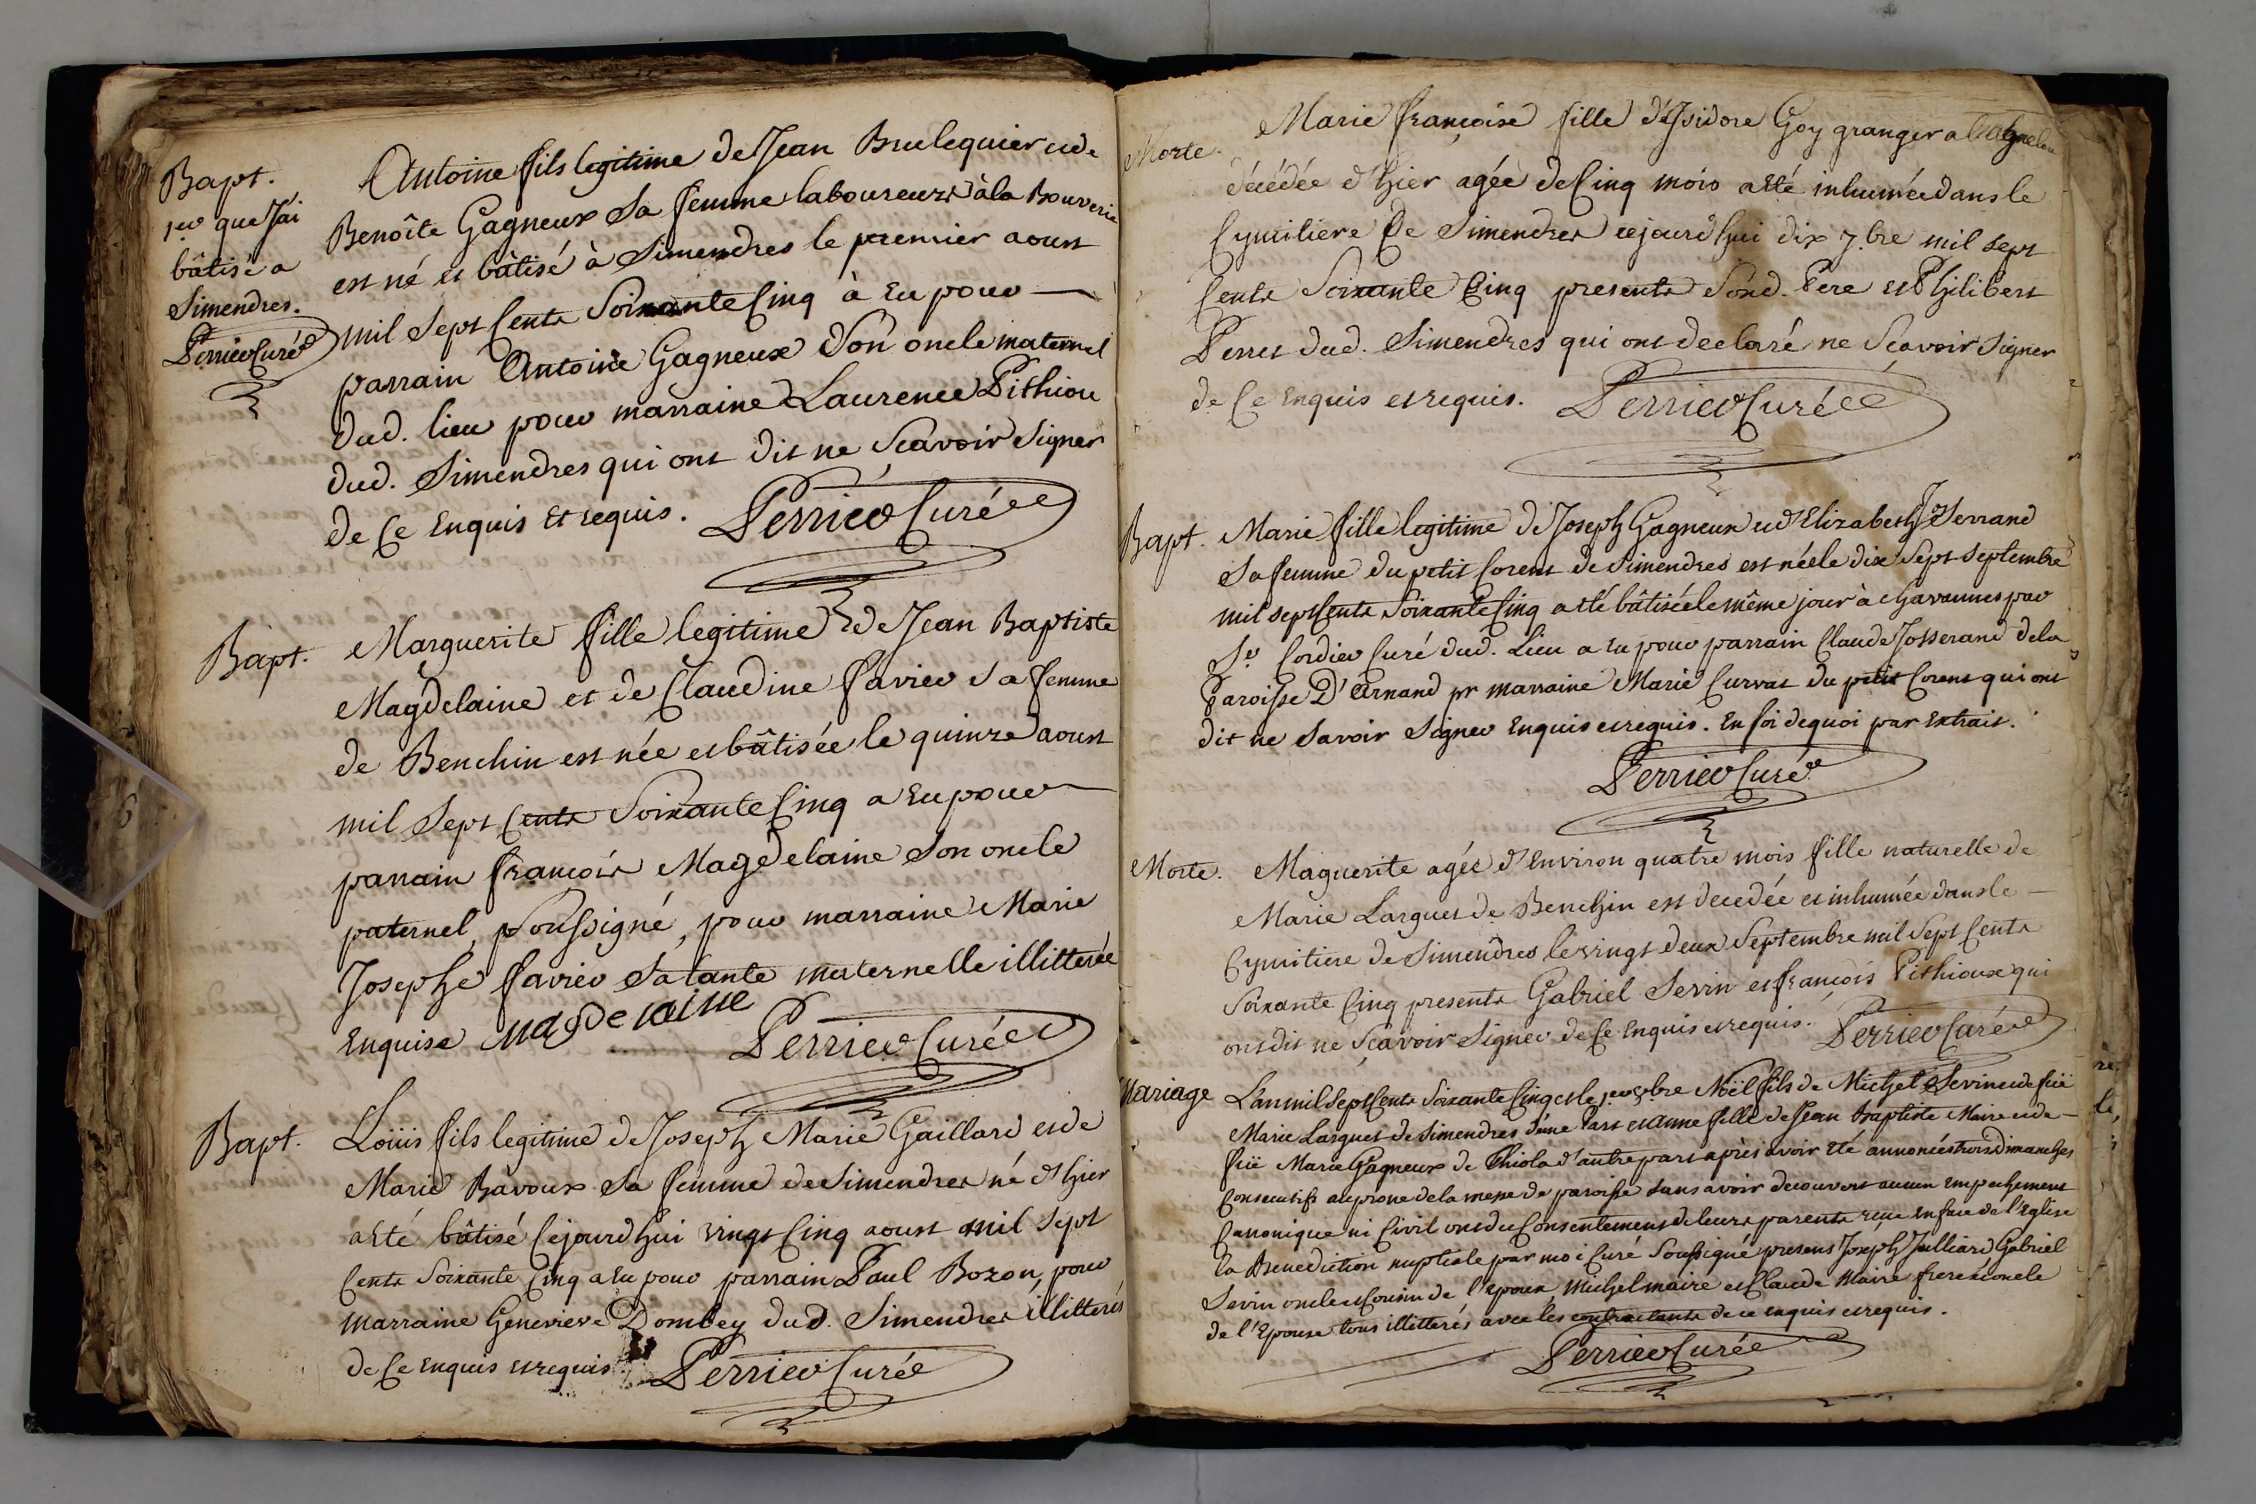 Bapt.
1er que J'ai
bâtisé a
Simendres.
Perrier Curé
Antoine fils legitime de Jean Brulequier et de
Benoîte Gagneux Sa femme laboureurs à la Bouverie
est né et bâtisé à Simendres le premier aoust
mil Sept Cents Soixante Cinq à Eu pour
parrain Antoine Gagneux Son oncle maternel
dud. lieu pour marraine Laurence Pithiou
dud. Simendres qui ont dit ne Scavoir Signer
de Ce Enquis Et requis. Perrier Curé
Bapt.
Marguerite fille legitime de Jean Baptiste
Magdelaine et de Claudine favier Sa femme
de Benchin est née et bâtisée le quinze aoust
mil Sept Cents Soixante Cinq a Eu pour
parrain françois Magdelaine Son oncle
paternel, Soussigné, pour marraine Marie
Josephe favier Sa tante maternelle illitterée
Enquise Magdelaine Perrier Curé
Bapt.
Loüis fils legitime de Joseph Marie Gaillard et de
Marie Bavoux Sa femme de Simendres né d'hier
a Eté bâtisé Cejourd'hui vingt Cinq aoust mil Sept
Cents Soixante Cinq a Eu pour parrain Paul Bozon, pour
marraine Genevieve Dombey dud. Simendres illitterés
de Ce Enquis et requis Perrier Curé
Morte.
Marie françoise fille d'Isidore Goy granger a
décédée d'hier agée de Cinq mois a Eté inhumée dans le
Cymitiere de Simendres cejourd'hui dix 7.bre mil sept
Cents Soixante Cinq presents Sond. Pere et Philibert
Perret dud. Simendres qui ont declaré ne Scavoir Signer
de Ce Enquis et requis. Perrier Curé
Bapt.
Marie fille legitime de Joseph Gagneux et d'Elizabeth Jserrand
Sa femme du petit Corent de Simendres est née le dix Sept Septembre
mil sept Cents Soixante Cinq a été bâtisée le même jour à Chavannes par
Sr. Cordier Curé dud. Lieu a Eu pour parrain Claude Josserand de la
Paroisse D'Arnand pr marraine Marie Curvat du petit Corent qui ont
dit ne Savoir Signer Enquis et requis. En foi de quoi par Extrait.
Perrier Curé
Morte.
Maguerite agée d'Environ quatre mois fille naturelle de
Marie Larguet de Benchin est decedée et inhumée dans le
Cymitiere de Simendres le vingt deux Septembre mil Sept Cents
Soixante Cinq presents Gabriel Sevin et françois Pithioux qui
ont dit ne Scavoir Signer de Ce Enquis et requis. Perrier Curé
Mariage
L'an mil Sept Cents Soixante Cinq et le 1er 8bre Noël fils de Michel Sevin et de füe
Marie Larguet de Simendres d'une Part et Anne fille de Jean Baptiste Maire et de
füe Marie Gagneux de Thiola d'autre part après avoir Eté annoncés trois dimanches
Consecutifs au prone de la messe de paroisse Sans avoir decouvert aucun Empechement
Canonique ni Civil ont du Consentement de leurs parents reçu En face de l'Eglise
la Benediction nuptiale par moi Curé Soussigné presens Joseph Julliard Gabriel
Sevin oncle et Cousin de l'Epoux, Michel maire et Claude Maire frere et oncle
de l'Epouse tous illitterés avec les contractants de ce enquis et requis.
Perrier Curé